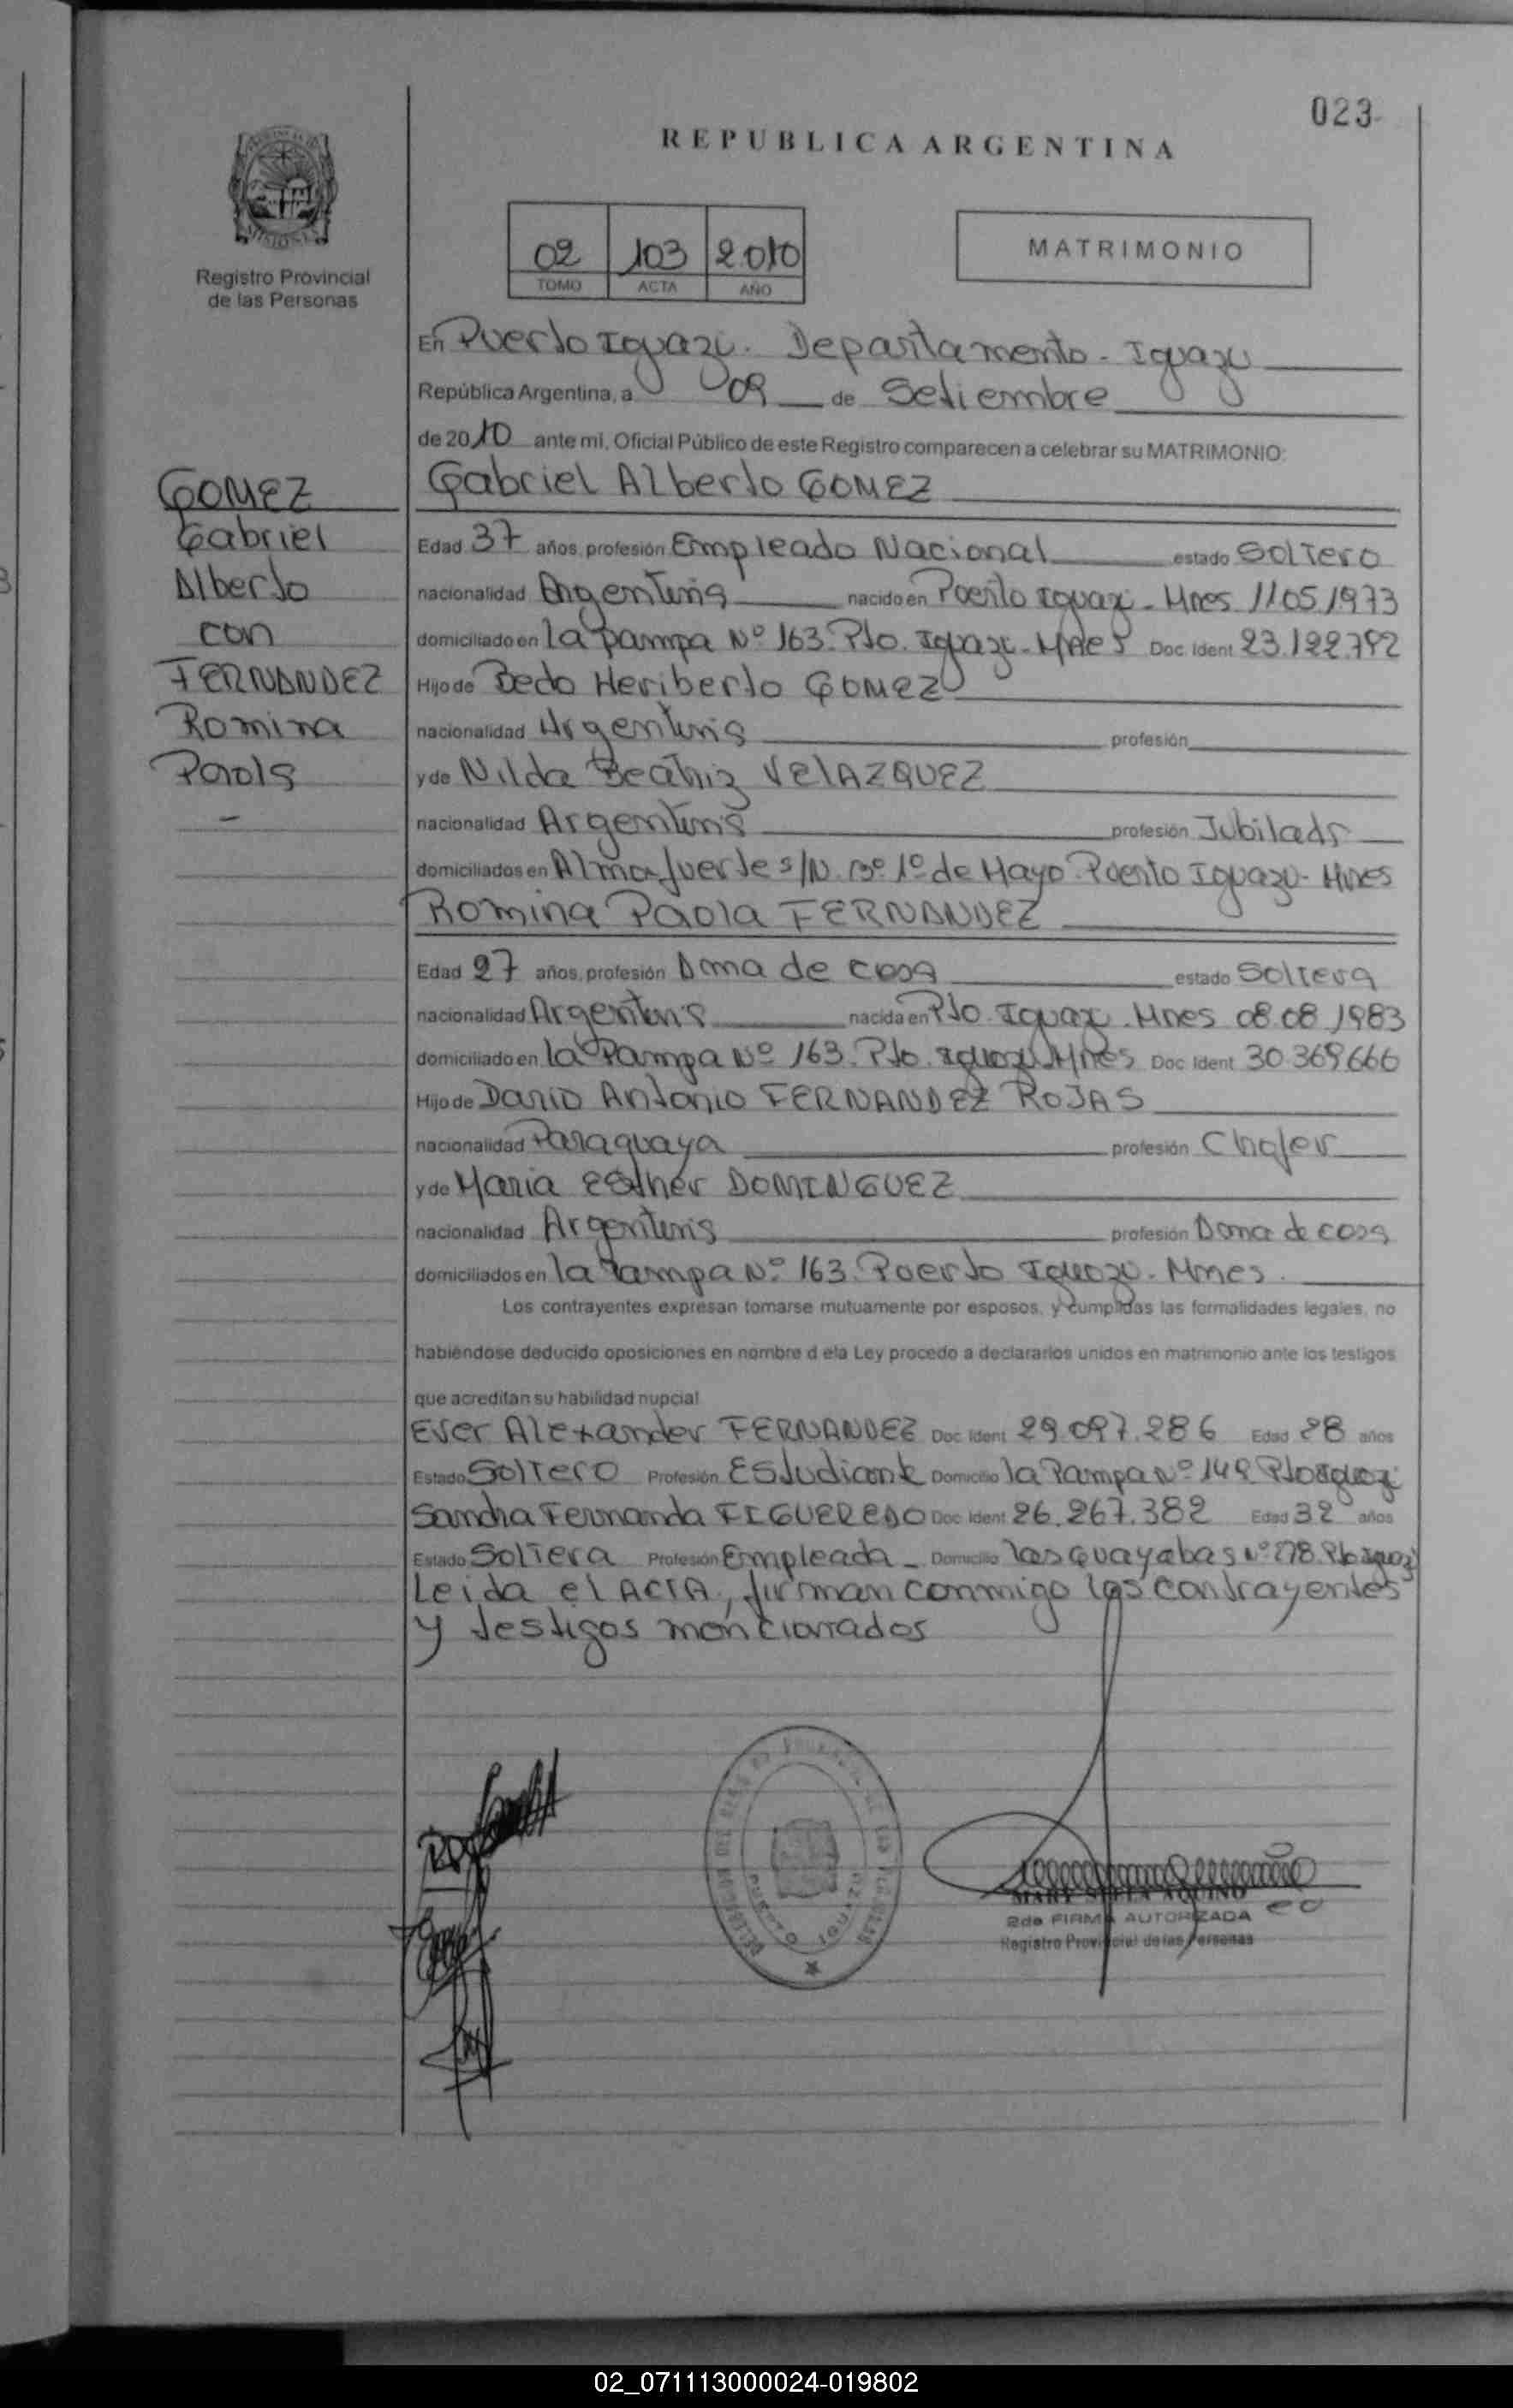 023
REPUBLICA ARGENTINA
Registro Provincial
de las Personas
02 103 2010
TOMO ACTA AÑO
MATRIMONIO
GOMEZ
Gabriel
Alberto
con
FERNANDEZ
Romina
Paola
En Puerto Iguazú. Departamento - Iguazu
República Argentina, a 09 de Setiembre
de 2010 ante mi, Oficial Público de este Registro comparecen a celebrar su MATRIMONIO:
Gabriel Alberto GOMEZ
Edad 37 años, profesión Empleado Nacional estado Soltero
nacionalidad Argentina nacido en Puerto Iguazu - Mnes 11 05 1973
domiciliado en la pampa Nº 163. Pto. Iguazu - Mnes Doc Ident 23.122.792
Hijo de Bedo Heriberto GOMEZ
nacionalidad Argentina profesión
y de Nilda Beatriz VELAZQUEZ
nacionalidad Argentina profesión Jubilada
domiciliados en Almafuerte s/N. Bº 1º de Mayo. Puerto Iguazu - Mnes
Romina Paola FERNANDEZ
Edad 27 años, profesión Ama de casa estado Soltera
nacionalidad Argentina nacida en Pto. Iguazu. Mnes 08.08.1983
domiciliado en la Pampa Nº 163. Pto. Iguazu Mnes Doc Ident 30.369.666
Hijo de Dario Antonio FERNANDEZ ROJAS
nacionalidad Paraguaya profesión Chofer
y de Maria Esther DOMINGUEZ
nacionalidad Argentina profesión Ama de casa
domiciliados en la Pampa Nº 163. Puerto Iguazu - Mnes.
Los contrayentes expresan tomarse mutuamente por esposos, y cumplidas las formalidades legales, no
habiéndose deducido oposiciones en nombre d ela Ley procedo a declararlos unidos en matrimonio ante los testigos
que acreditan su habilidad nupcial
Ever Alexander FERNANDEZ Doc Ident 29.097.286 Edad 28 años
Estado Soltero Profesión Estudiante Domicilio la Pampa Nº 149. Pto Iguazu
Sandra Fernanda FIGUEREDO Doc Ident 26.267.382 Edad 32 años
Estado Soltera Profesión Empleada - Domicilio las Guayabas Nº 278. Pto Iguazu
Leida el ACTA, firman conmigo los contrayentes
y testigos moncionados
AQUINO
2da FIRMA AUTORIZADA
Registro Provincial de las Personas
02_071113000024-019802